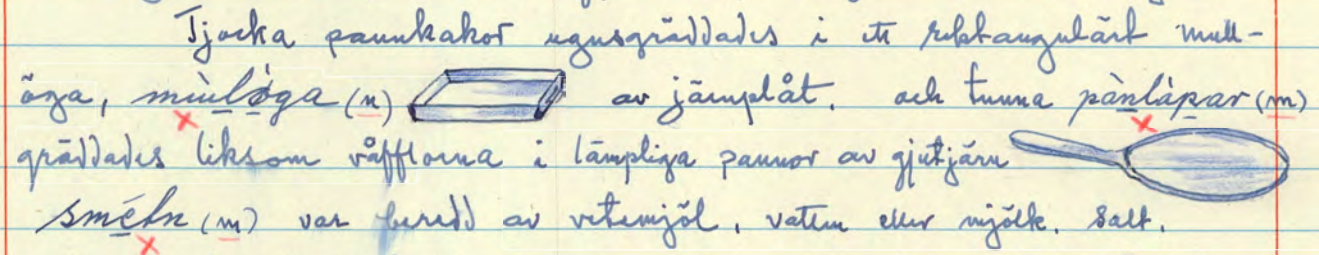 Tjocka pannkakor ugnsgräddades i ett rektangulärt mull-
öga, mùlǿga (n) av järnplåt. och tunna pànlàpar (m)
gräddades liksom våfflorna i lämpliga pannor av gjutjärn
smétn (m) var beredd av vetemjöl, vatten eller mjölk. salt.